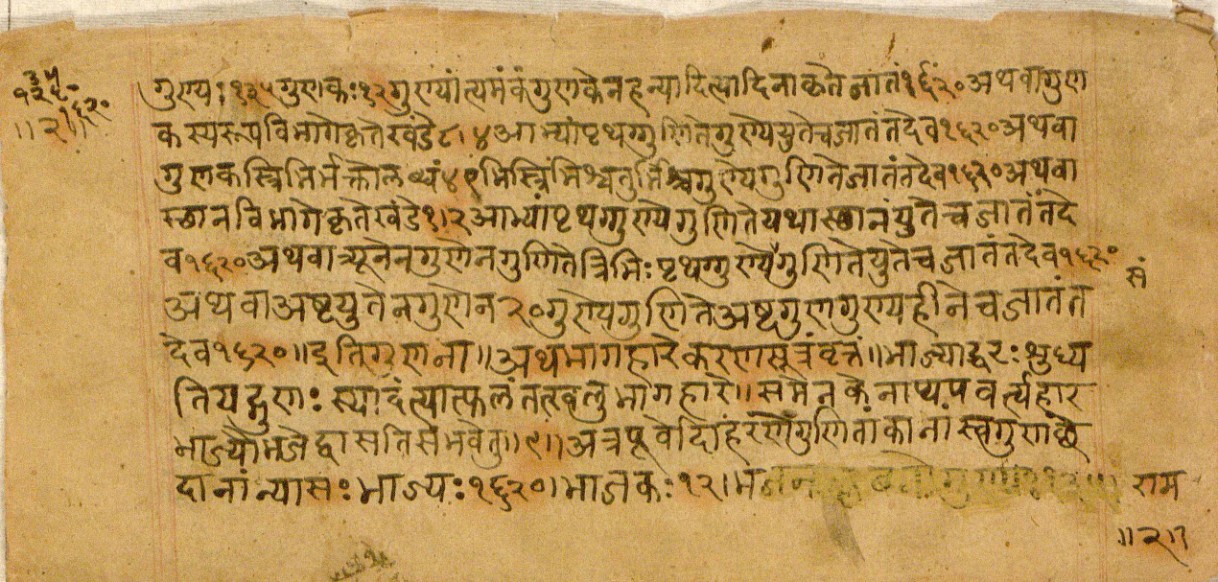 गुण्यः १३५ गुणकः १२ गुण्यांत्यमंकं गुणकेन हन्यादित्यादिना कृते जातं १६२० अथवा गुण
कस्य रूपविभागे कृते खंडे ८।४ आभ्यां पृथग्गुणिते गुण्ये युते च जातं तदेव १६२० अथवा
गुणकस्त्रिभिर्भक्तो लब्धं ४ एभिस्त्रिभिश्च गुण्ये गुणिते जातं तदेव १६२० अथवा
स्छानविभागे कृते खंडे १।२ आभ्यां पृथग्गुण्ये गुणिते यथास्छानं युते च जातं तदे
व १६२० अथवा द्व्यूनेन गुणेन गुणिते त्रिभिः पृथग्गुण्ये गुणिते युते च जातं तदेव १६२०
अथवा अष्टयुतेन गुणेन २० गुण्ये गुणिते अष्टगुणगुण्यहीने च जातं त
देव १६२० ॥ इति गुणना ॥ अथ भागहारे करणसूत्रं वृत्तं ॥ भाज्याद्धरः शुध्य
ति यद्गुणः स्यादंत्यात्फलं तत्खलु भागहारे ॥ समेन केनाप्यपवर्त्य हार
भाज्यौ भजेद्वा सति संभवे तु ॥९॥ अत्र पूर्वोदाहरणे गुणितांकानां स्वगुणछे
दानां न्यासः भाज्यः १६२०। भाजकः १२।
राम
॥२॥